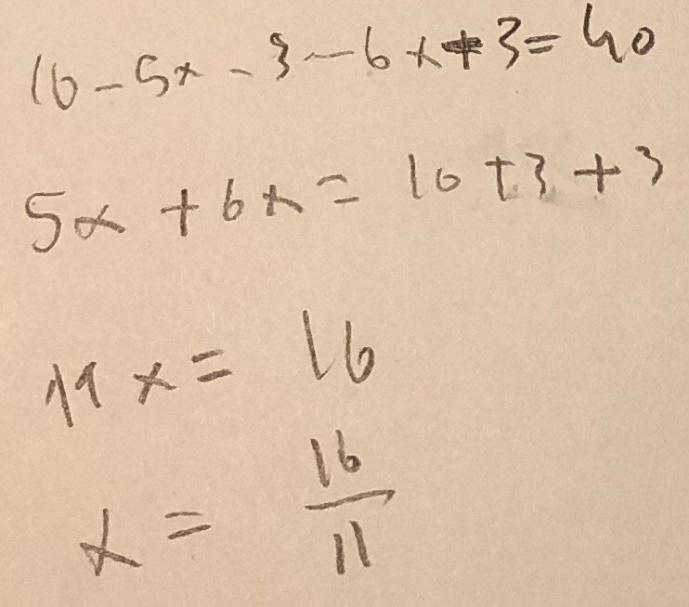 10-5x-3-6x+3=40
5x+6x=10+3+3
11x=16
x=16/11